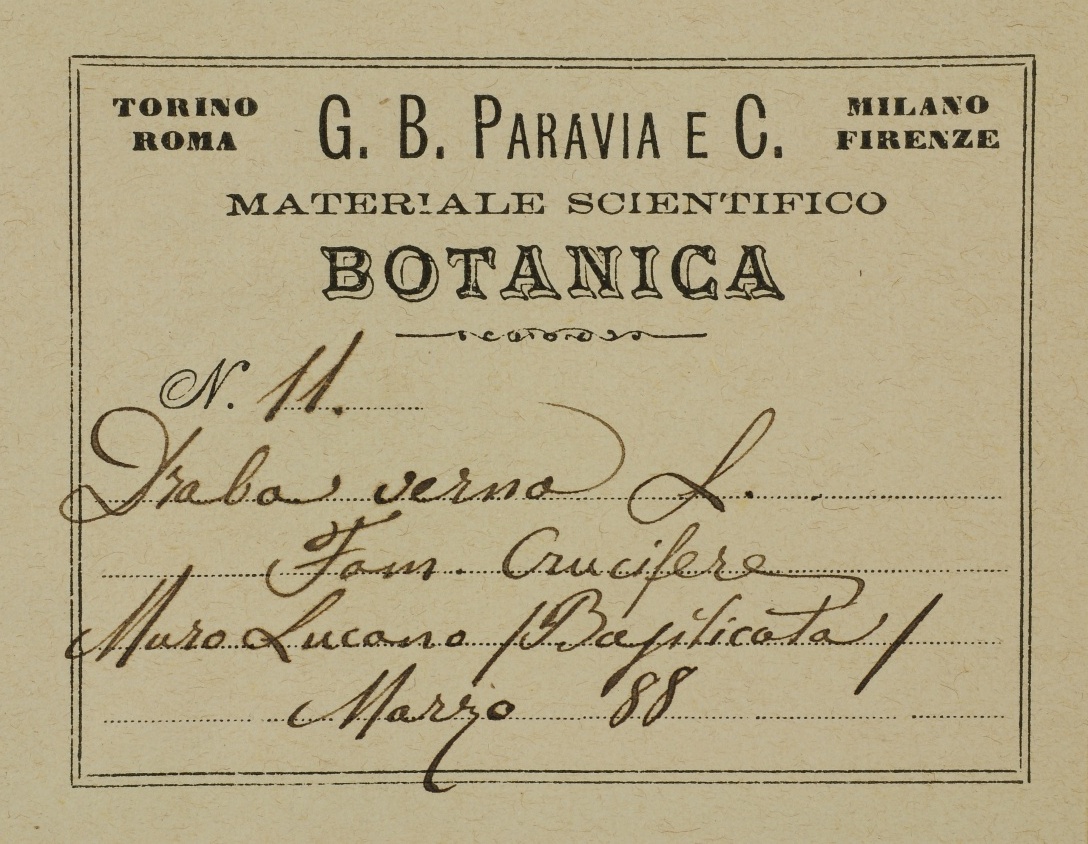 TORINO G. B. PARAVIA E C. MILANO
ROMA FIRENZE
MATERIALE SCIENTIFICO
BOTANICA
N. 11.
Draba verna L.
Fam. Crucifere
Muro Lucano /Basilicata/
Marzo 88